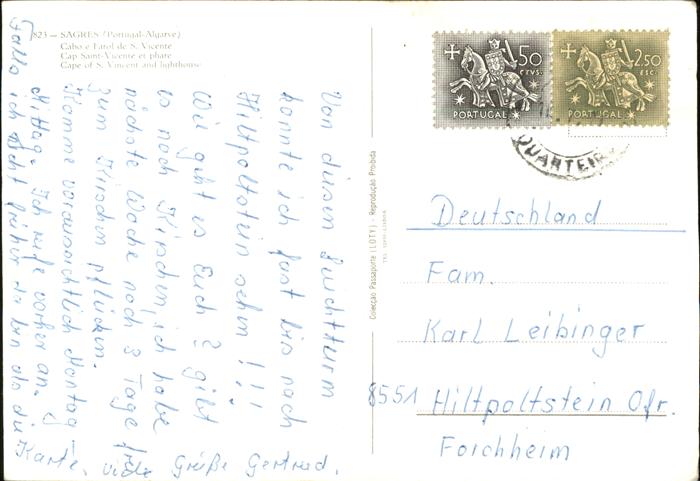 823 — SAGRES (Portugal-Algarve)
Cabo e Farol de S. Vicente
Cap Saint-Vicente et phare
Cape of S. Vincent and lighthouse
Von diesem Leuchtturm
konnte ich fast bis nach
Hiltpoltstein sehn!!!
Wie geht es Euch? gibt
es noch Kirschen, ich habe
nächste Woche noch 3 Tage frei
zum Kirschen pflücken.
Komme voraussichtlich Montag
Mittag. Ich rufe vorher an.
Falls ich nicht früher da bin als die
Karte, viele Grüße Gertrud.
Colecção Passaporte (LOTY) - Reprodução Proibida
$50
CTVS.
PORTUGAL
2$50
ESC.
PORTUGAL
QUARTEIRA
Deutschland
Fam.
Karl Leibinger
8551 Hiltpoltstein Ofr.
Forchheim